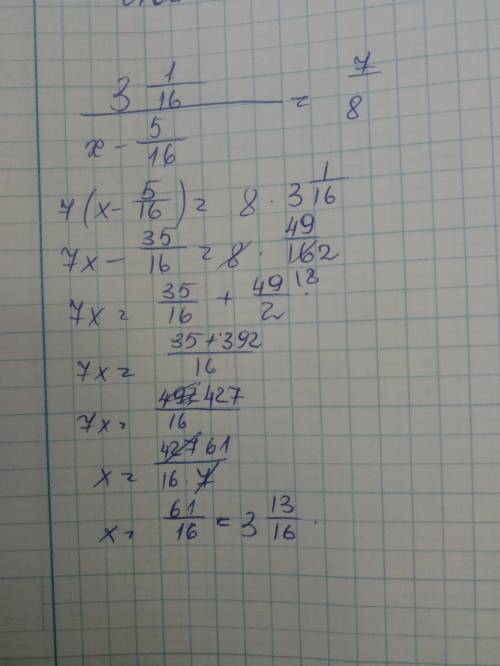 3 1/16 / (x - 5/16) = 7/8
7(x - 5/16) = 8 · 3 1/16
7x - 35/16 = 8 · 49/16 2
7x = 35/16 + 49/2 18
7x = 35+392/16
7x = 427/16
x = 427 61/16·7
x = 61/16 = 3 13/16.